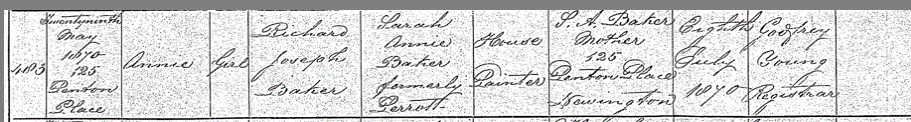 483
Twentyninth
May
1870
125
Penton
Place
Annie
Girl
Richard
Joseph
Baker
Sarah
Annie
Baker
formerly
Perrott
House
Painter
S. A. Baker
Mother
125
Penton Place
Newington
Eighth
July
1870
Godfrey
Young
Registrar